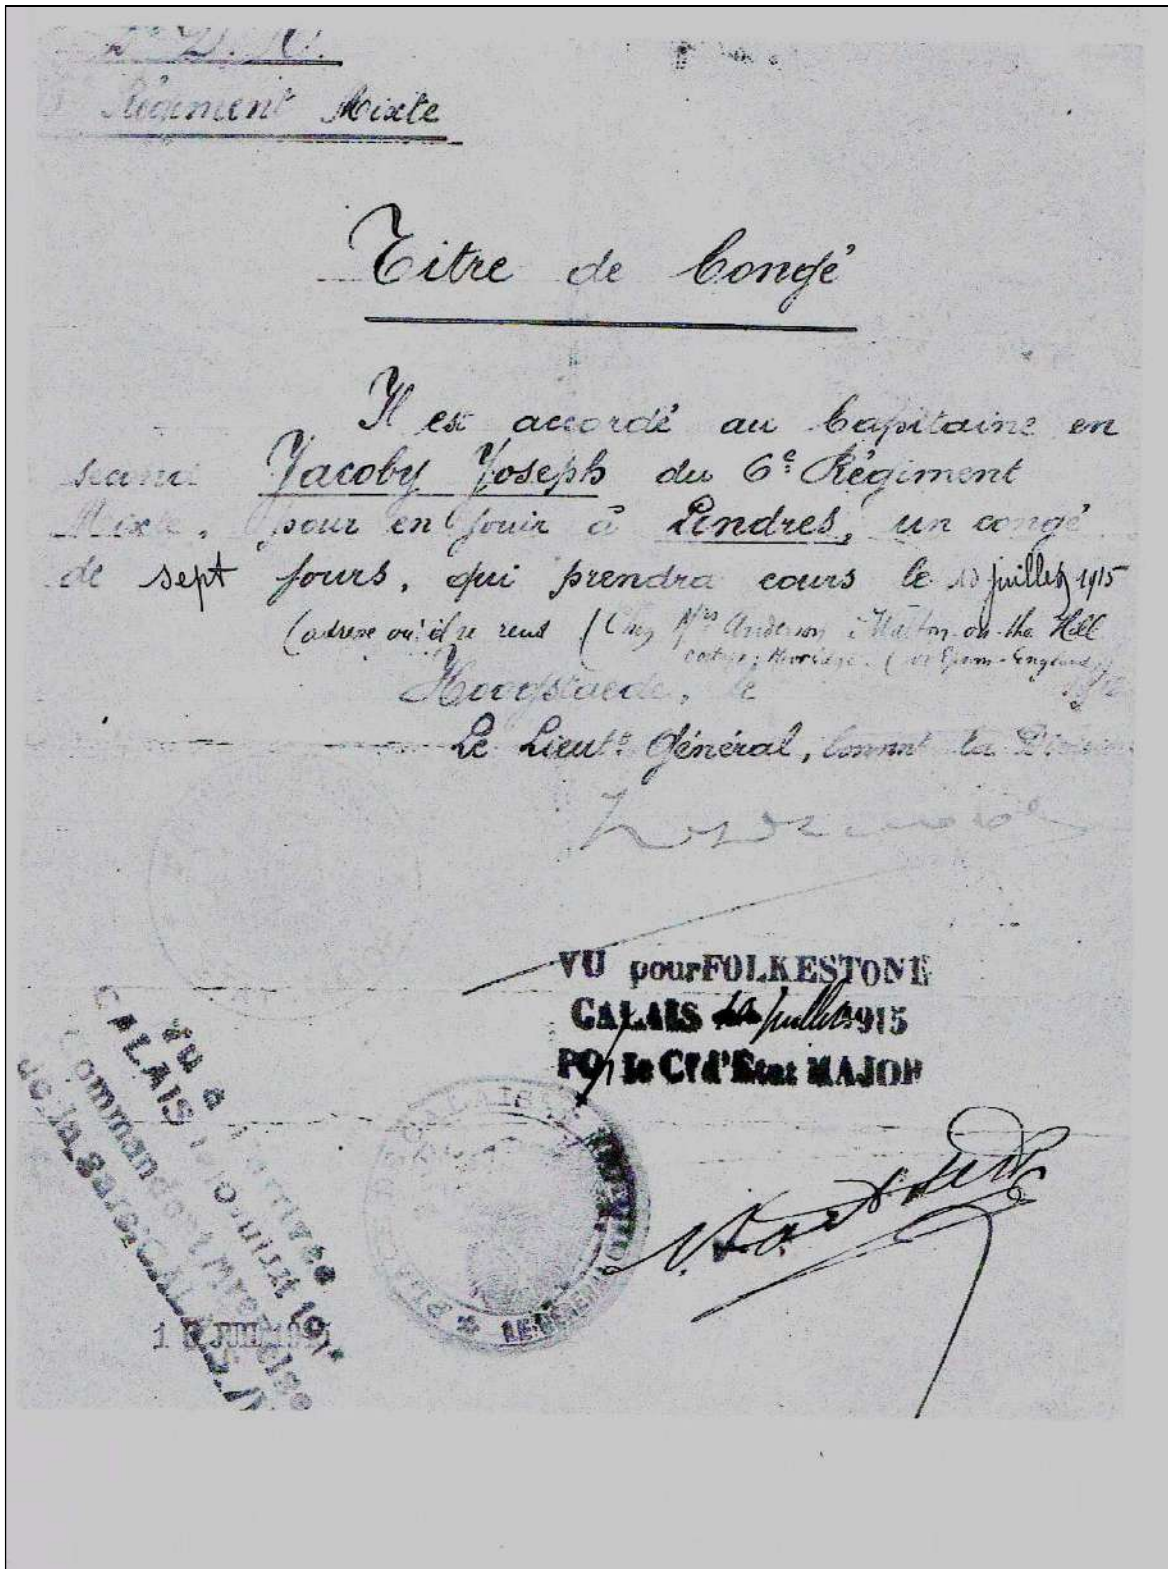 D. A.
Régiment Mixte
Titre de Congé
Il est accordé au Capitaine en
second Jacoby Joseph du 6e Régiment
Mixte, pour en jouir à Londres, un congé
de sept jours, qui prendra cours le 10 juillet 1915
(adresse où il se rend (Chez Mrs Anderson à Walton on the Hill
England)
Hoogstaede, le 191
Le Lieutt Général, Commt la Division
VU pour FOLKESTONE
CALAIS juillet 1915
PO, le Cf d'Etat MAJOR
PLACE CALAIS
Vu à l'arrivée
CALAIS
Commandant
de la gare CALAIS